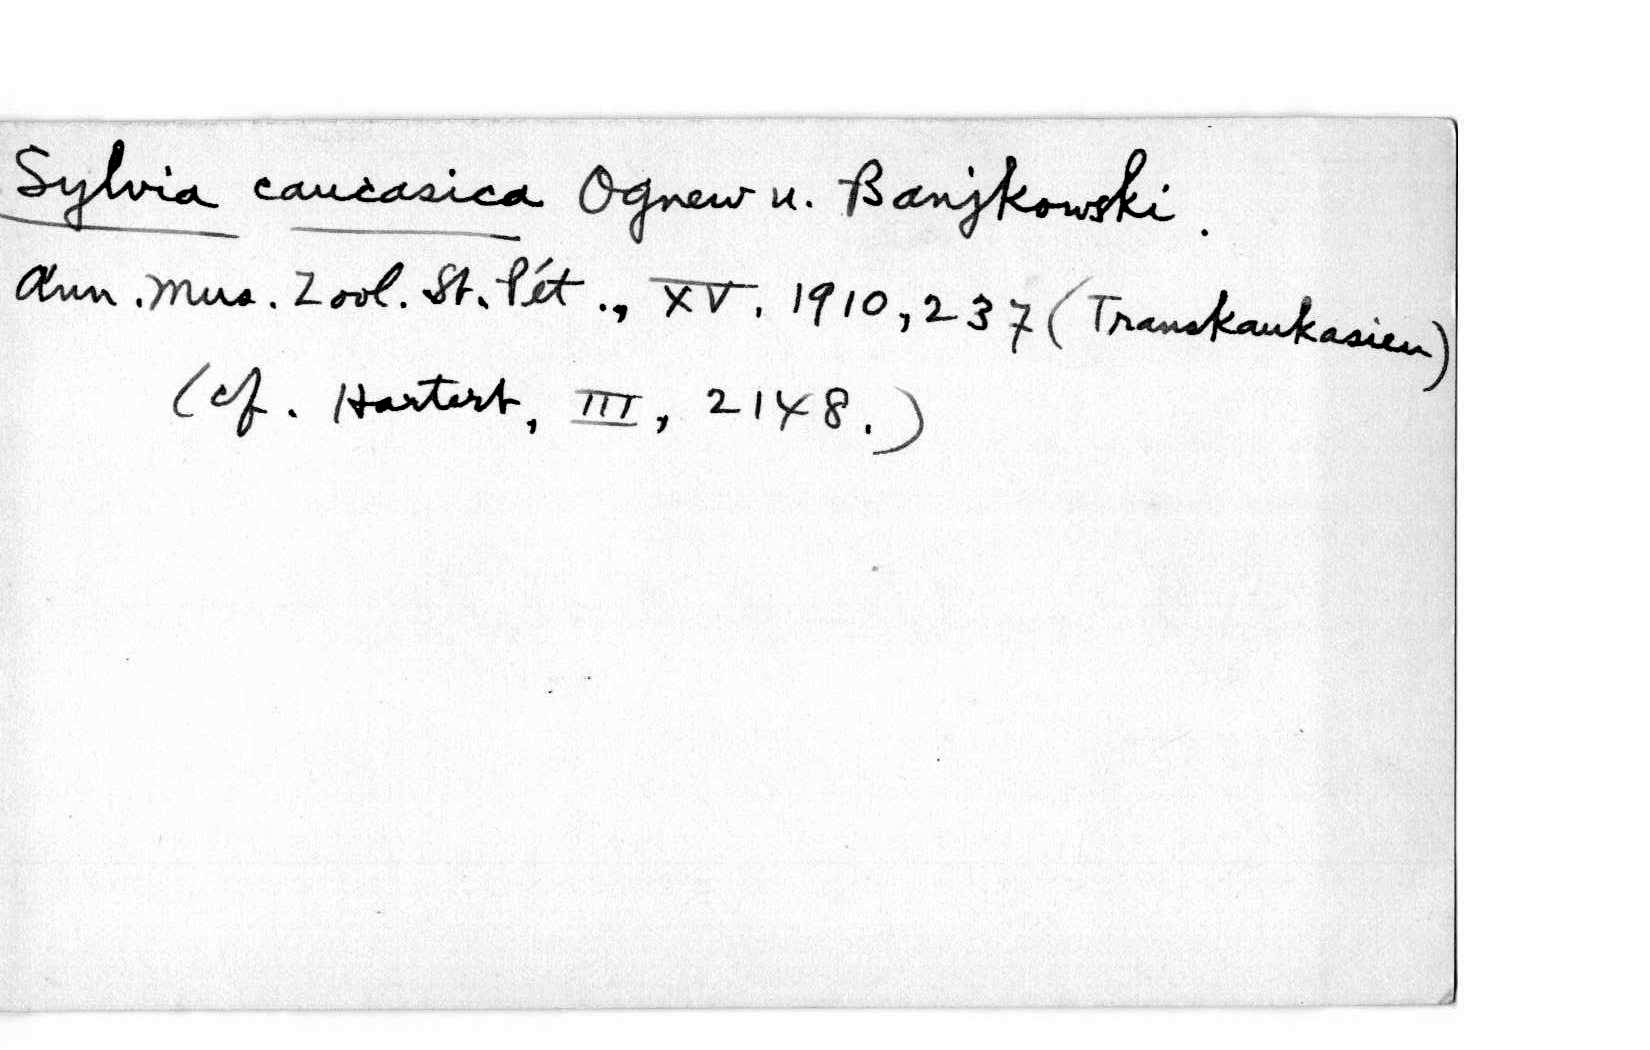 Sylvia caucasica Ognew u. Banjkowski.
Ann. Mus. Zool. St. Pét., XV, 1910, 237 (Transkaukasien)
(cf. Hartert, III, 2148.)